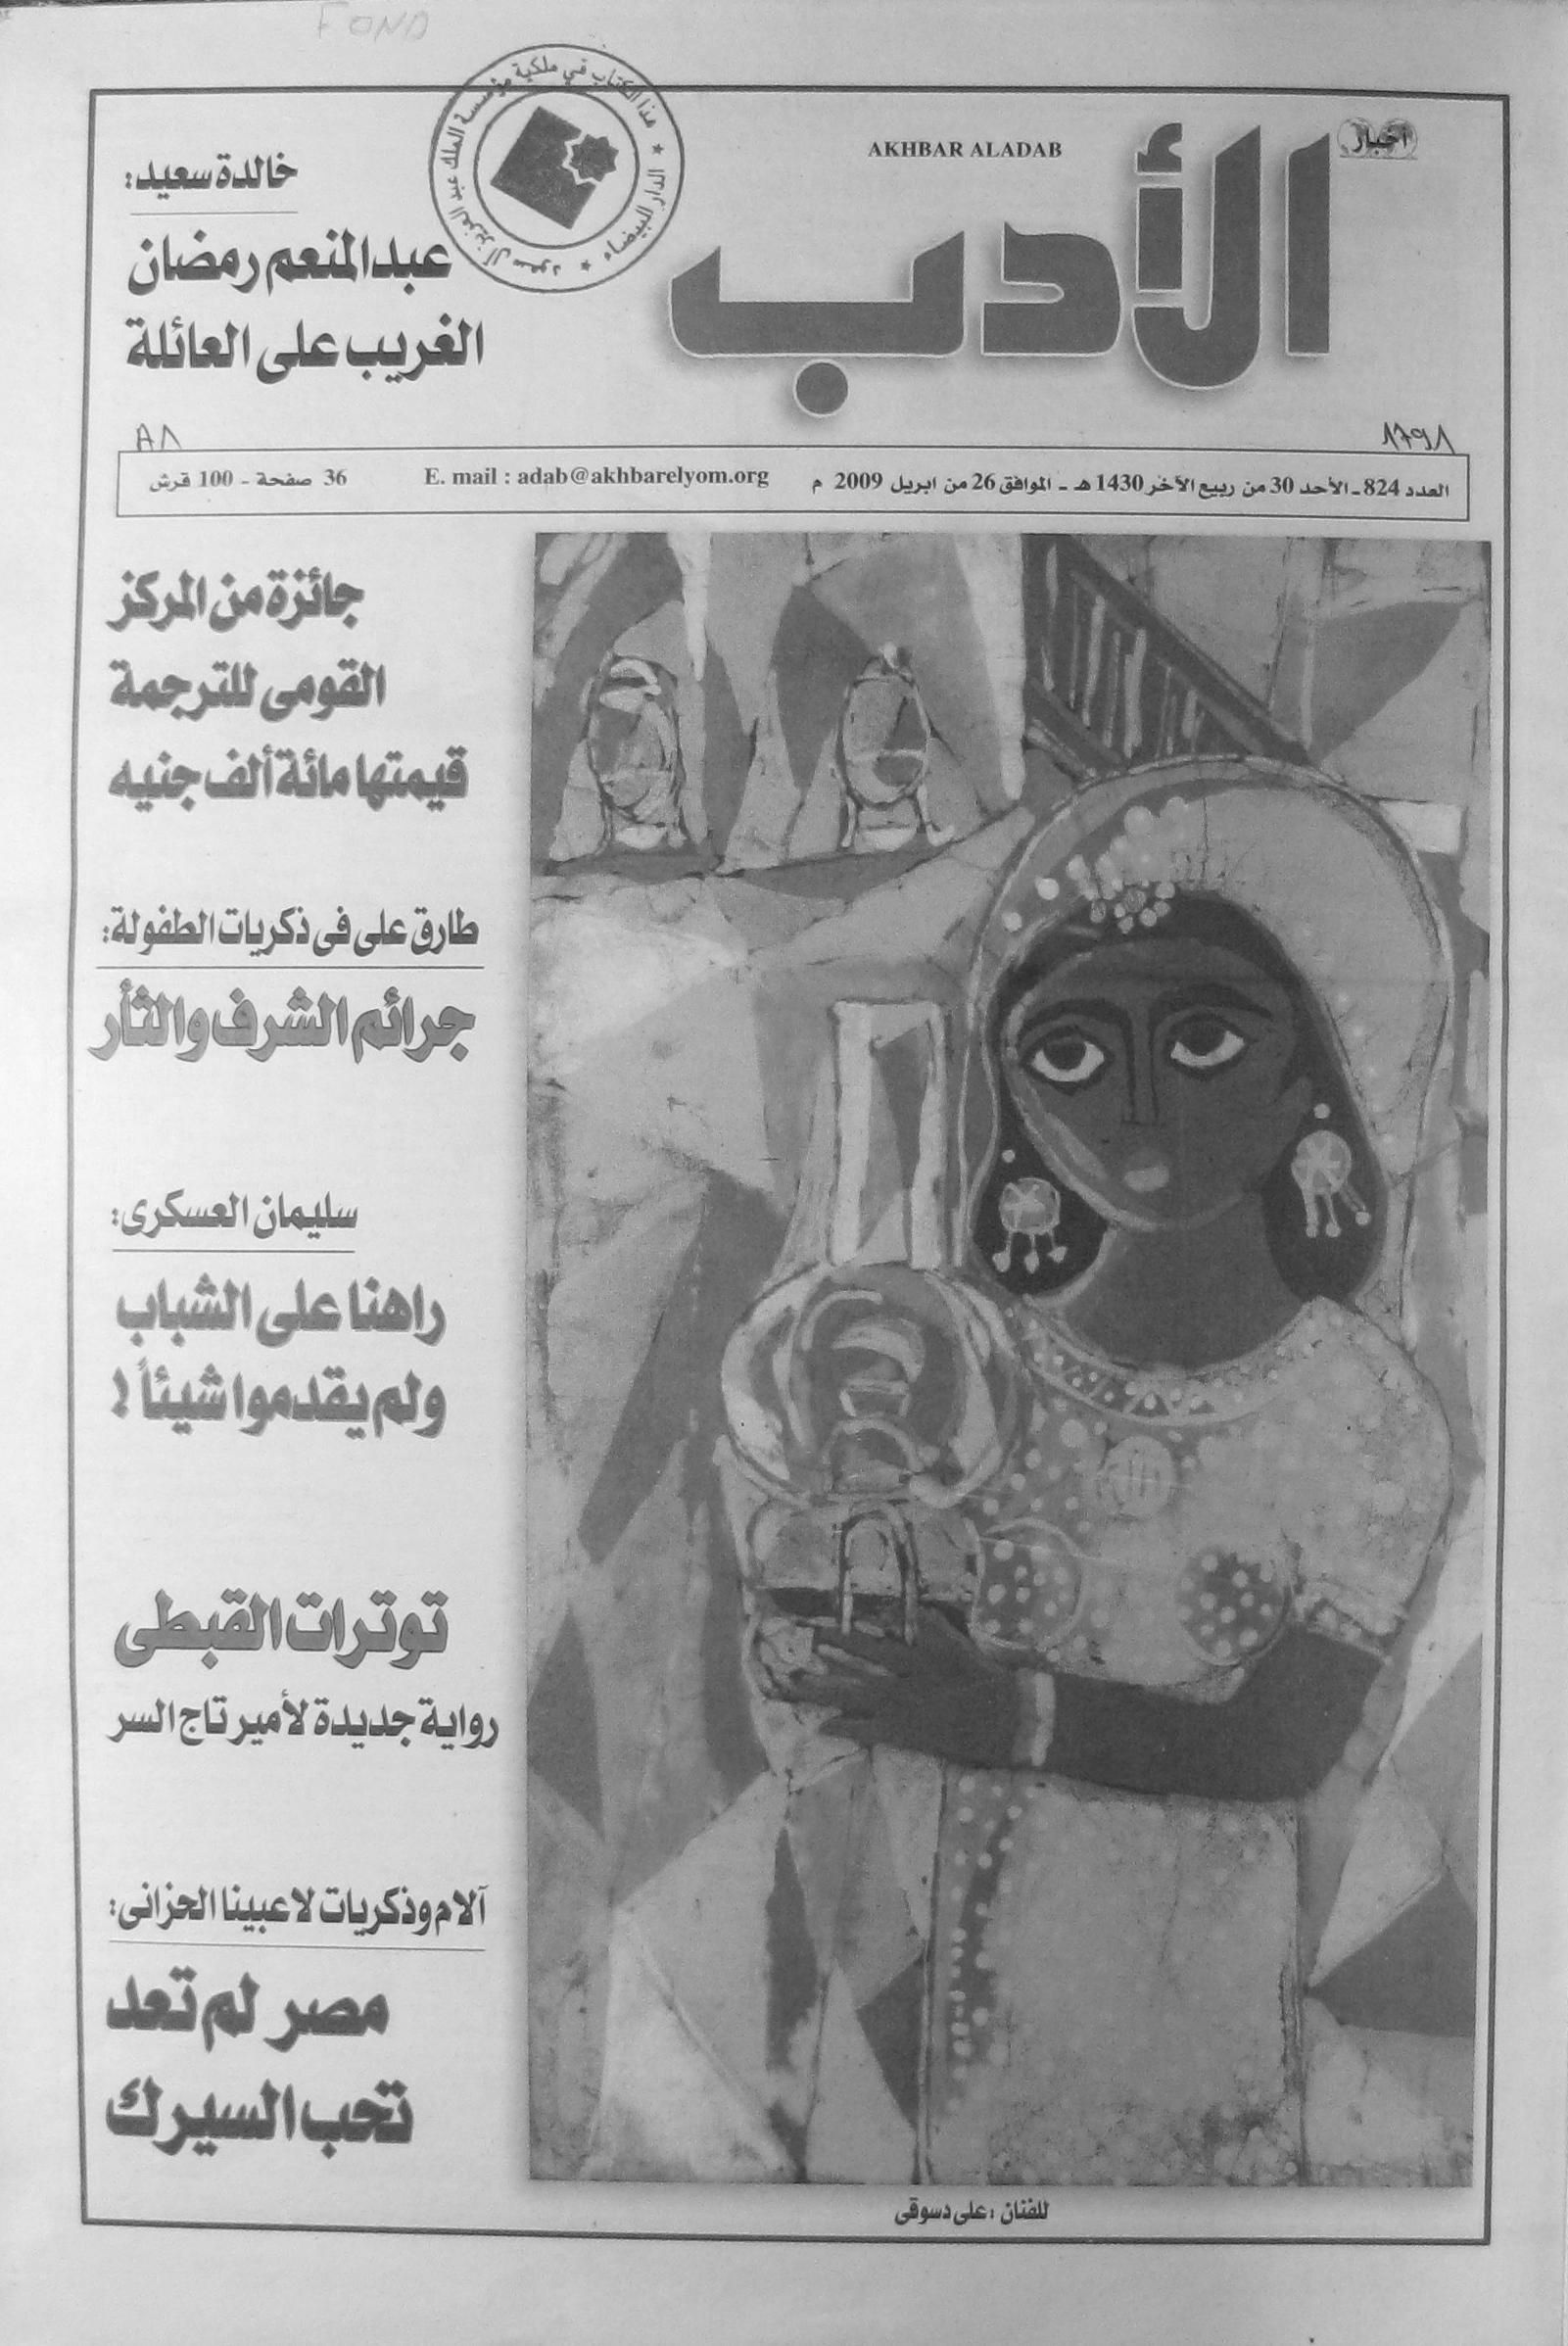 FOND
اخبار
الأدب
AKHBAR ALADAB
هذا الكتاب في ملكية مؤسسة الملك عبد العزيز آل سعود ★ الدار البيضاء ★
خالدة سعيد:
عبدالمنعم رمضان
الغريب على العائلة
٨٨
١٦٩١
العدد 824 ـ الأحد 30 من ربيع الآخر 1430 هـ ـ الموافق 26 من ابريل 2009 م
E. mail : adab@akhbarelyom.org
36 صفحة - 100 قرش
جائزة من المركز
القومى للترجمة
قيمتها مائة ألف جنيه
طارق على فى ذكريات الطفولة:
جرائم الشرف والثأر
سليمان العسكرى:
راهنا على الشباب
ولم يقدموا شيئاً !
توترات القبطى
رواية جديدة لأمير تاج السر
آلام وذكريات لاعبينا الحزانى:
مصر لم تعد
تحب السيرك
للفنان : على دسوقى